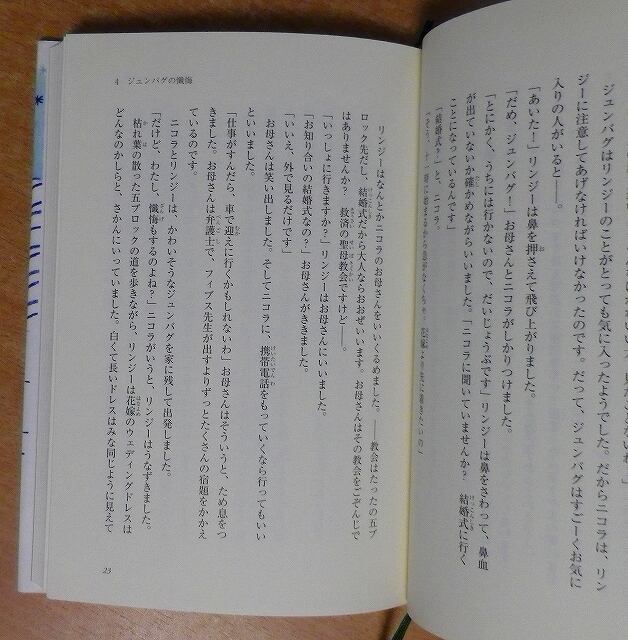 ジュンバグはリンジーのことがとっても気に入ったようでした。だからニコラは、リン
ジーに注意してあげなければいけなかったのです。だって、ジュンバグはすごーくお気に
入りの人がいると――。
「あいたー！」リンジーは鼻を押さえて飛び上がりました。
「だめ、ジュンバグ！」お母さんとニコラがしかりつけました。
「とにかく、うちには行かないので、だいじょうぶです」リンジーは鼻をさわって、鼻血
が出ていないか確かめながらいいました。「ニコラに聞いていませんか？　結婚式に行く
ことになっているんです」
「結婚式？」と、ニコラ。
4　ジュンバグの懺悔
リンジーはなんとかニコラのお母さんをいいくるめました。――教会はたったの五ブ
ロック先だし、結婚式だから大人ならおおぜいいます。お母さんはその教会をごぞんじで
はありませんか？　救済の聖母教会ですけど――。
「いっしょに行きますか？」リンジーはお母さんにいいました。
「お知り合いの結婚式なの？」お母さんがききました。
「いいえ、外で見るだけです」
お母さんは笑い出しました。そしてニコラに、携帯電話をもっていくなら行ってもいい
といいました。
「仕事がすんだら、車で迎えに行くかもしれないわ」お母さんはそういうと、ため息をつ
きました。お母さんは弁護士で、フィップス先生が出すよりずっとたくさんの宿題をかかえ
ているのです。
ニコラとリンジーは、かわいそうなジュンバグを家に残して出発しました。
「だけど、わたし、懺悔もするのよね？」ニコラがいうと、リンジーはうなずきました。
枯れ葉の散った五ブロックの道を歩きながら、リンジーは花嫁のウェディングドレスは
どんなのかしらと、さかんにいっていました。白くて長いドレスはみな同じように見えて
23